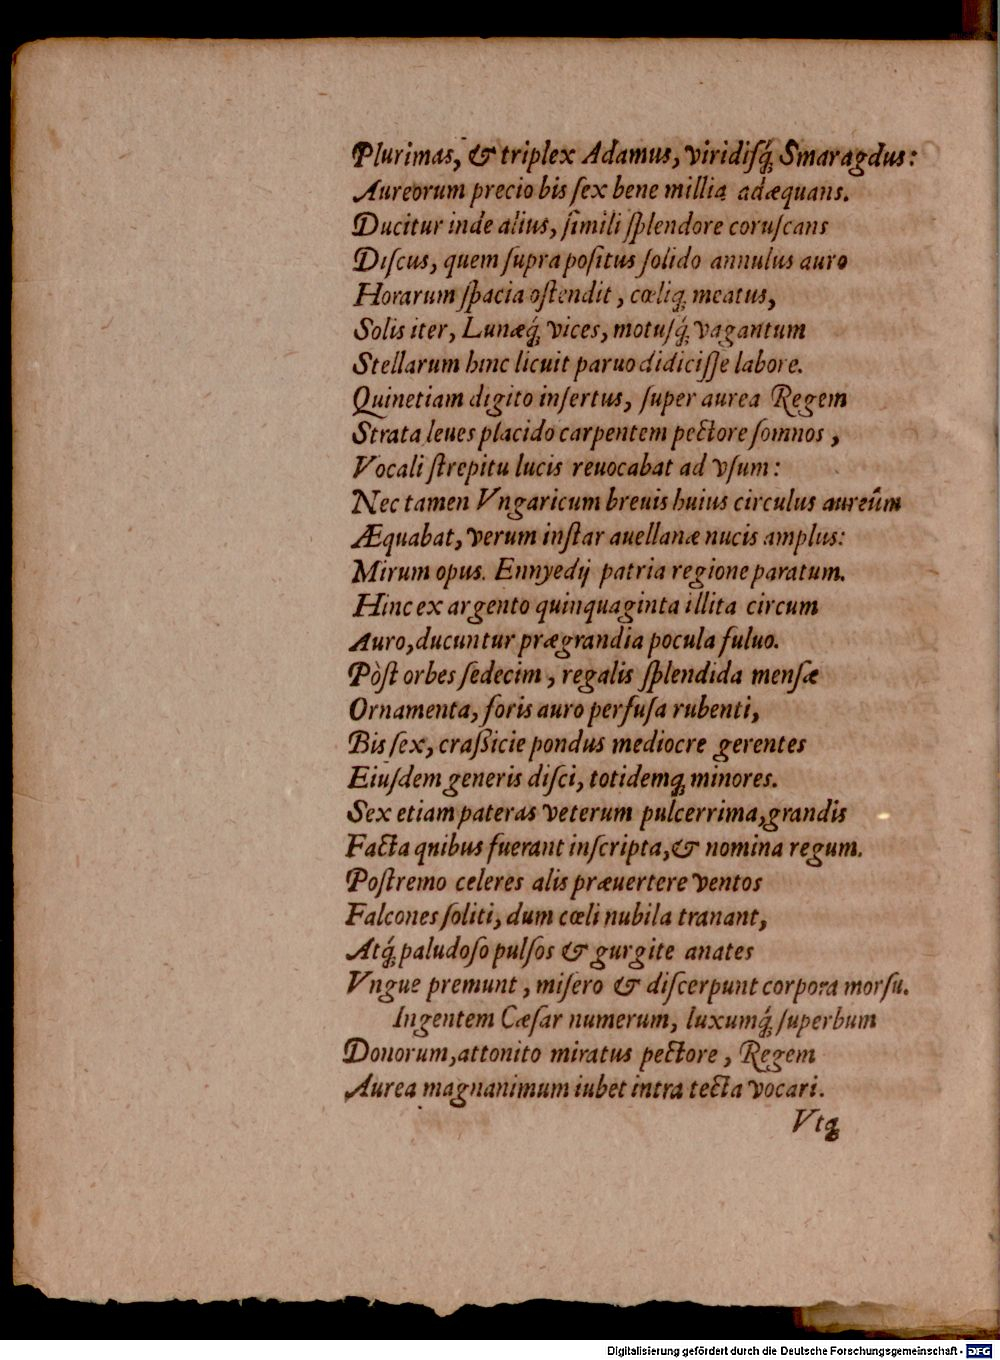 Plurimas, & triplex Adamus, viridiſq́; Smaragdus:
Aureorum precio bis ſex bene millia adæquans.
Ducitur inde alius, ſimili ſplendore coruſcans
Diſcus, quem ſupra poſitus ſolido annulus auro
Horarum ſpacia oſtendit, cœliq; meatus,
Solis iter, Lunæq́; vices, motuſq́; vagantum
Stellarum hinc licuit paruo didiciſſe labore.
Quinetiam digito inſertus, ſuper aurea Regem
Strata leues placido carpentem pectore ſomnos,
Vocali ſtrepitu lucis reuocabat ad vſum:
Nec tamen Vngaricum breuis huius circulus aureũm
Æquabat, verum inſtar auellanæ nucis amplus:
Mirum opus. Ennyedij patria regione paratum.
Hinc ex argento quinquaginta illita circum
Auro, ducuntur prægrandia pocula fuluo.
Pòſt orbes ſedecim, regalis ſplendida menſæ
Ornamenta, foris auro perfuſa rubenti,
Bis ſex, craſſicie pondus mediocre gerentes
Eiuſdem generis diſci, totidemq; minores.
Sex etiam pateras veterum pulcerrima, grandis
Facta qnibus fuerant inſcripta, & nomina regum.
Poſtremo celeres alis præuertere ventos
Falcones ſoliti, dum cœli nubila tranant,
Atq́; paludoſo pulſos & gurgite anates
Vngue premunt, miſero & diſcerpunt corpora morſu.
Ingentem Cæſar numerum, luxumq́; ſuperbum
Donorum, attonito miratus pectore, Regem
Aurea magnanimum iubet intra tecta vocari.
Vtq;
Digitalisierung gefördert durch die Deutsche Forschungsgemeinschaft - DFG